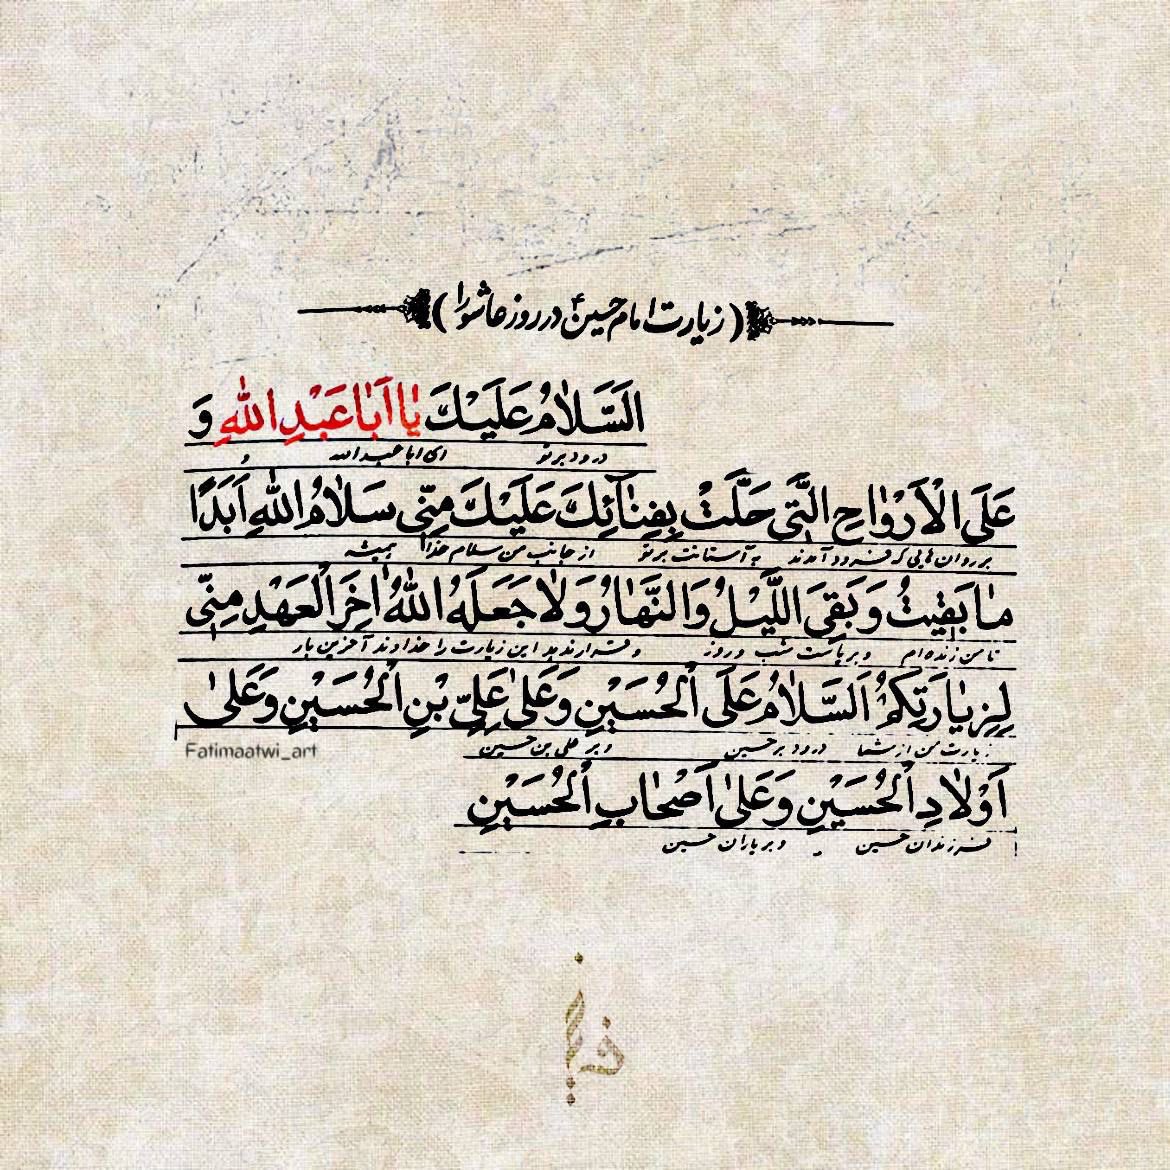 (زیارت امام حسین ع در روز عاشورا)
اَلسَّلٰامُ عَلَیْكَ یٰا اَبٰا عَبْدِ اللّٰهِ وَ
درود بر تو ای ابا عبدالله و
عَلَی الْاَرْوٰاحِ الَّتی حَلَّتْ بِفِنٰائِكَ عَلَیْكَ مِنّی سَلٰامُ اللّٰهِ اَبَدًا
بر روان هایی که فرود آمدند به آستانت بر تو از جانب من سلام خدا همیشه
مٰا بَقیتُ وَ بَقیَ اللَّیْلُ وَ النَّهٰارُ وَ لٰا جَعَلَهُ اللّٰهُ اٰخِرَ الْعَهْدِ مِنّی
تا من زنده ام و برپاست شب و روز و قرار ندهد این زیارت را خداوند آخرین بار
لِزِیٰارَتِكُمْ اَلسَّلٰامُ عَلَی الْحُسَیْنِ وَ عَلیٰ عَلِیِّ بْنِ الْحُسَیْنِ وَ عَلیٰ
زیارت من از شما درود بر حسین و بر علی بن حسین
Fatimaatwi_art
اَوْلٰادِ الْحُسَیْنِ وَ عَلیٰ اَصْحٰابِ الْحُسَیْنِ
فرزندان حسین و بر یاران حسین